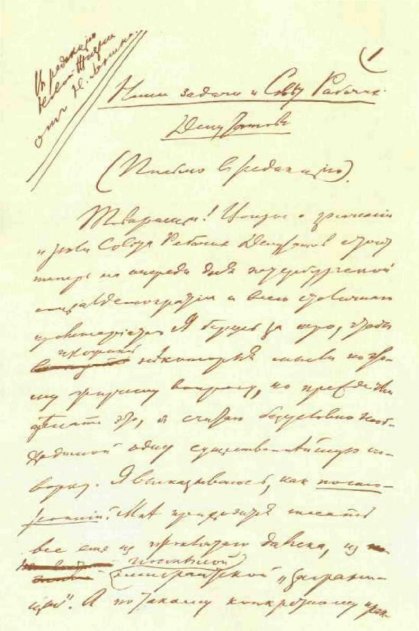 В редакцию
"Новой Жизни"
от Н. Ленина.
1
Наши задачи и Совет Рабочих
Депутатов
(Письмо в редакцию).
Товарищи! Вопрос о значении
и роли Совета Рабочих Депутатов стоит
теперь на очереди дня петербургской
социалдемократии и всего столичного
пролетариата. Я берусь за перо, чтобы
изложить некоторые мысли по это-
му жгучему вопросу, но прежде чем
сделать это, я считаю безусловно необ-
ходимой одну существеннейшую ого-
ворку. Я высказываюсь, как посто-
ронний. Мне приходится писать
все еще из проклятого далека, из
постылой
эмигрантской "заграни-
цы". А по такому конкретному